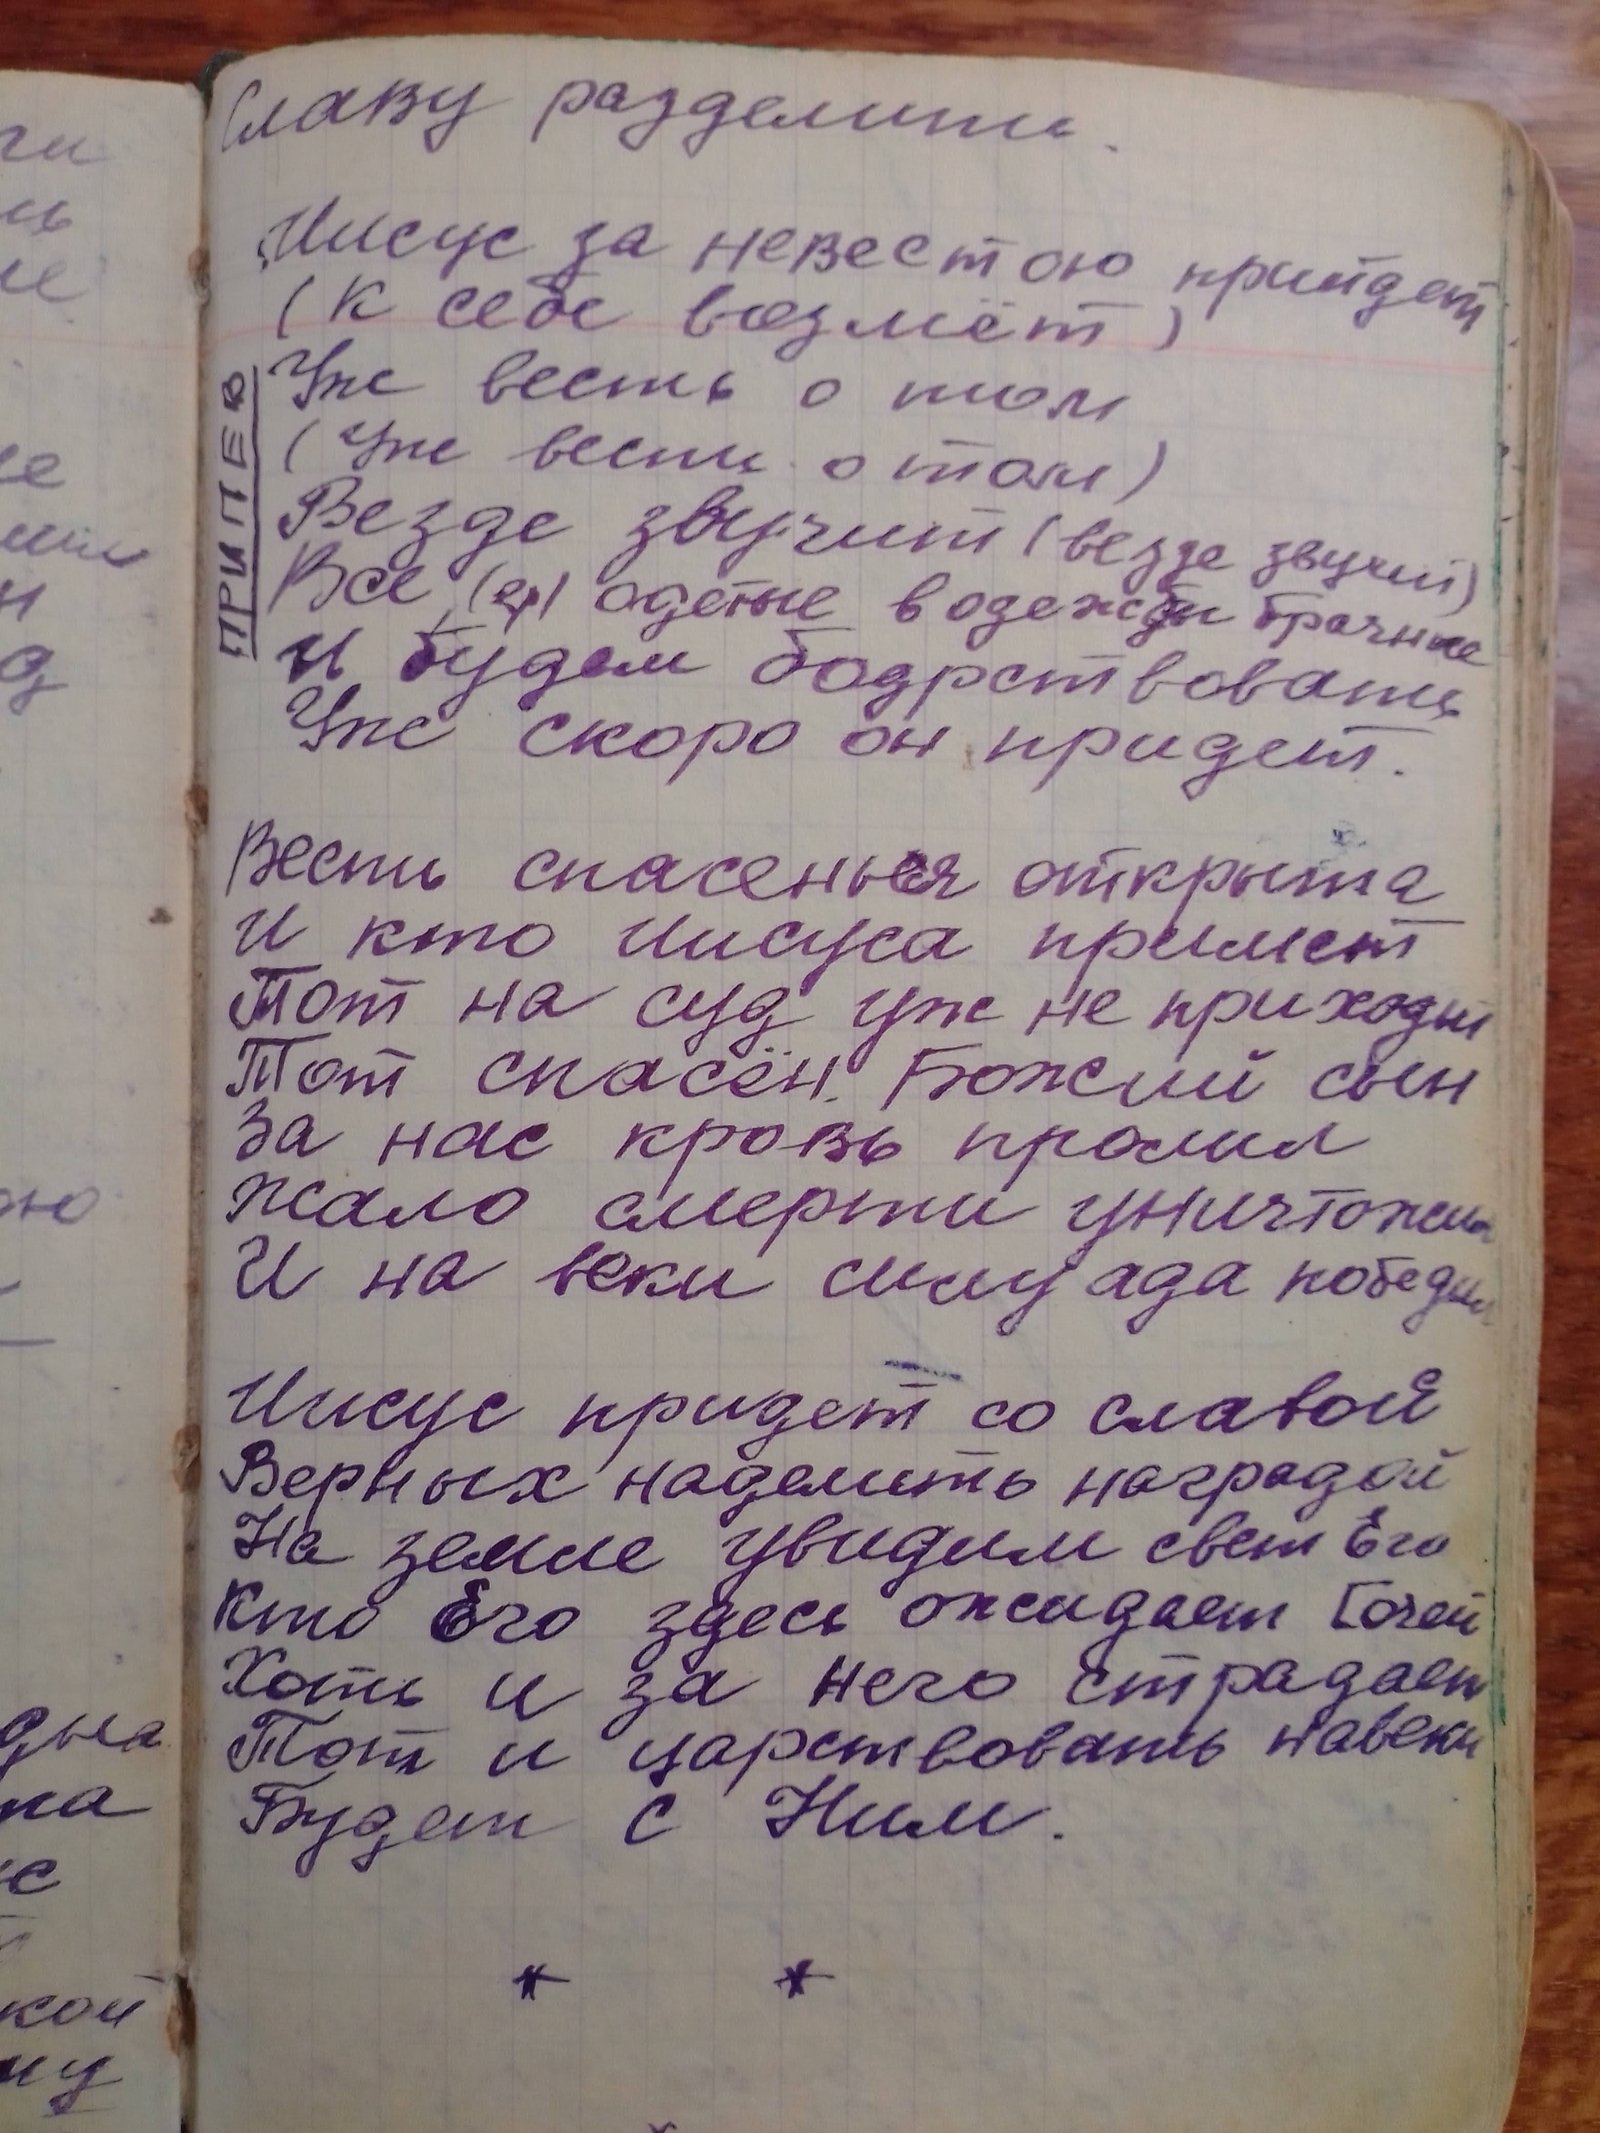 Славу разделить.
Иисус за невестою прийдет
(К себе возмёт)
Уж весть о том
(Уж весть о том)
Везде звучит (везде звучит)
ПРИПЕВ
Все, одетые в одежды брачные
И будем бодрствовать
Уж скоро он придет.
Весть спасенья открыта
И кто Иисуса примет
Тот на суд уж не приходит
Тот спасён. Божий сын
За нас кровь пролил
Жало смерти уничтожил
И на веки силу ада победил
Иисус придет со славой
Верных наделить наградой
На земле увидим свет Его
Кто Его здесь ожидает [очей
Хоть и за него страдает
Тот и царствовать навеки
Будет с Ним.
* *